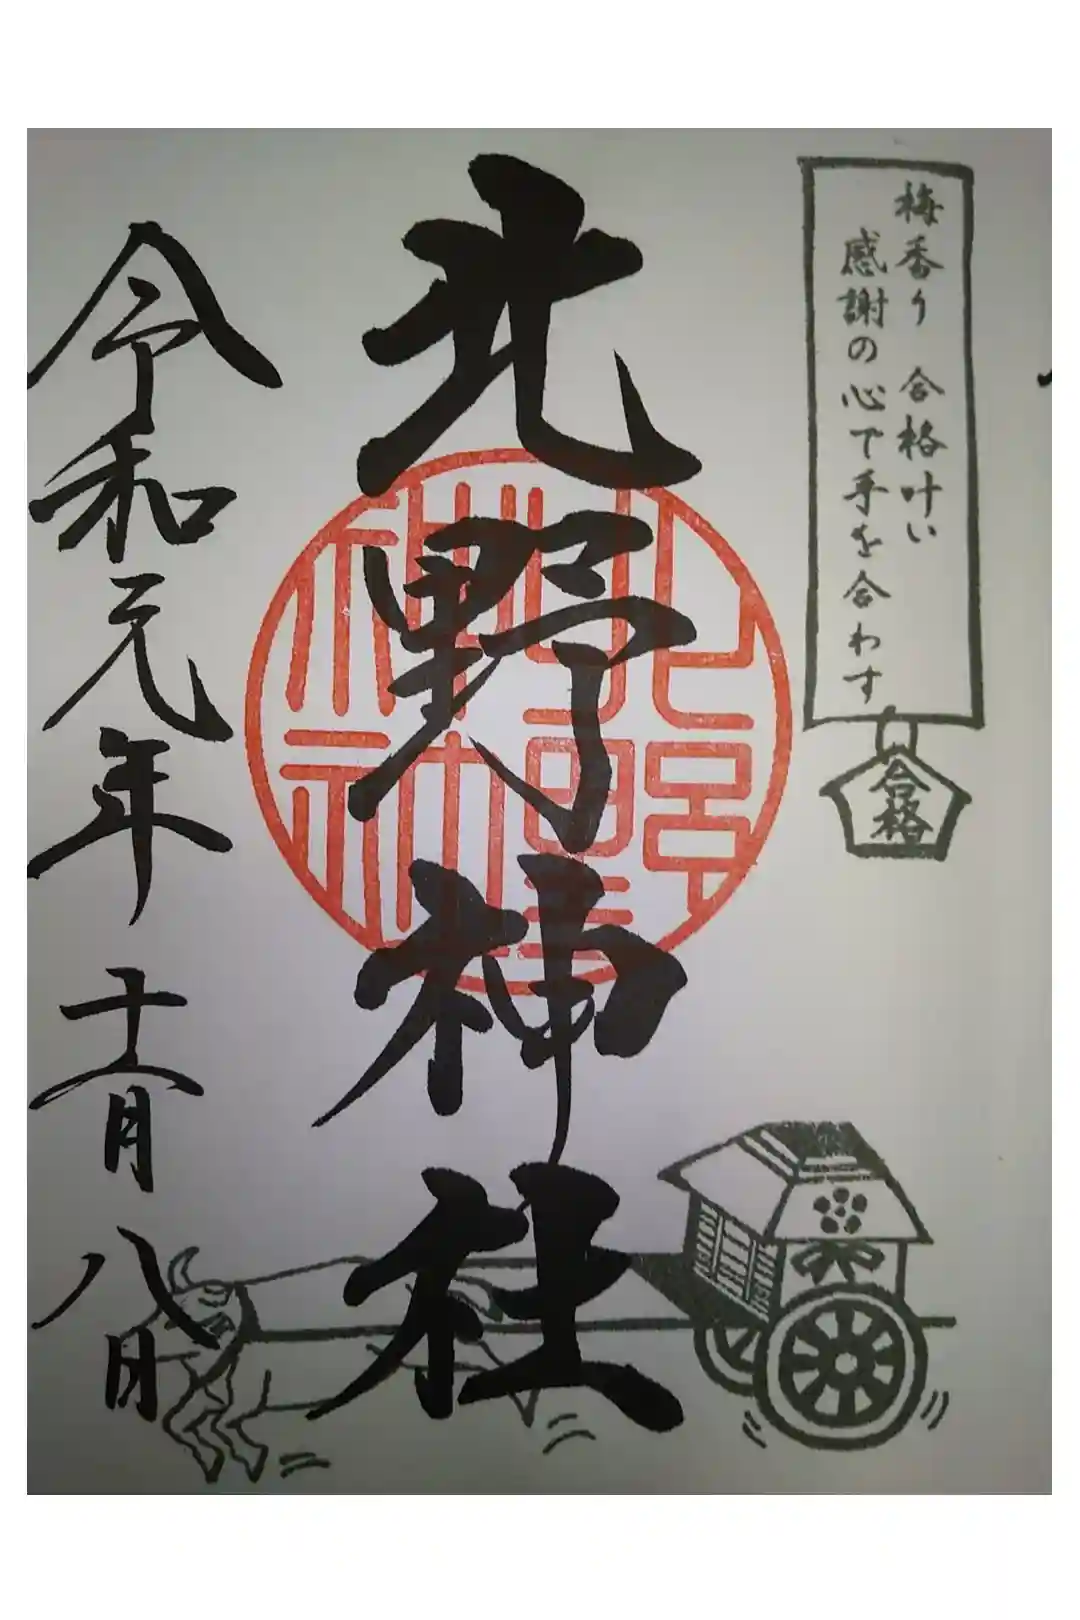 梅香り 合格叶い
感謝の心で手を合わす
合格
北野神社
北野
神社
令和元年 十二月 八日